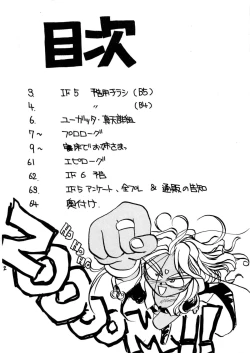 目次
3. IF5 予告用チラシ (B5)
4. 〃 (B4)
6. ユーガッタ・
7〜 プロローグ
9〜 でお姉さま。
61 エピローグ
62. IF6 予告
63. IF5アンケート、 & 通販の告知
64 奥付け.
ZOOOOM!!